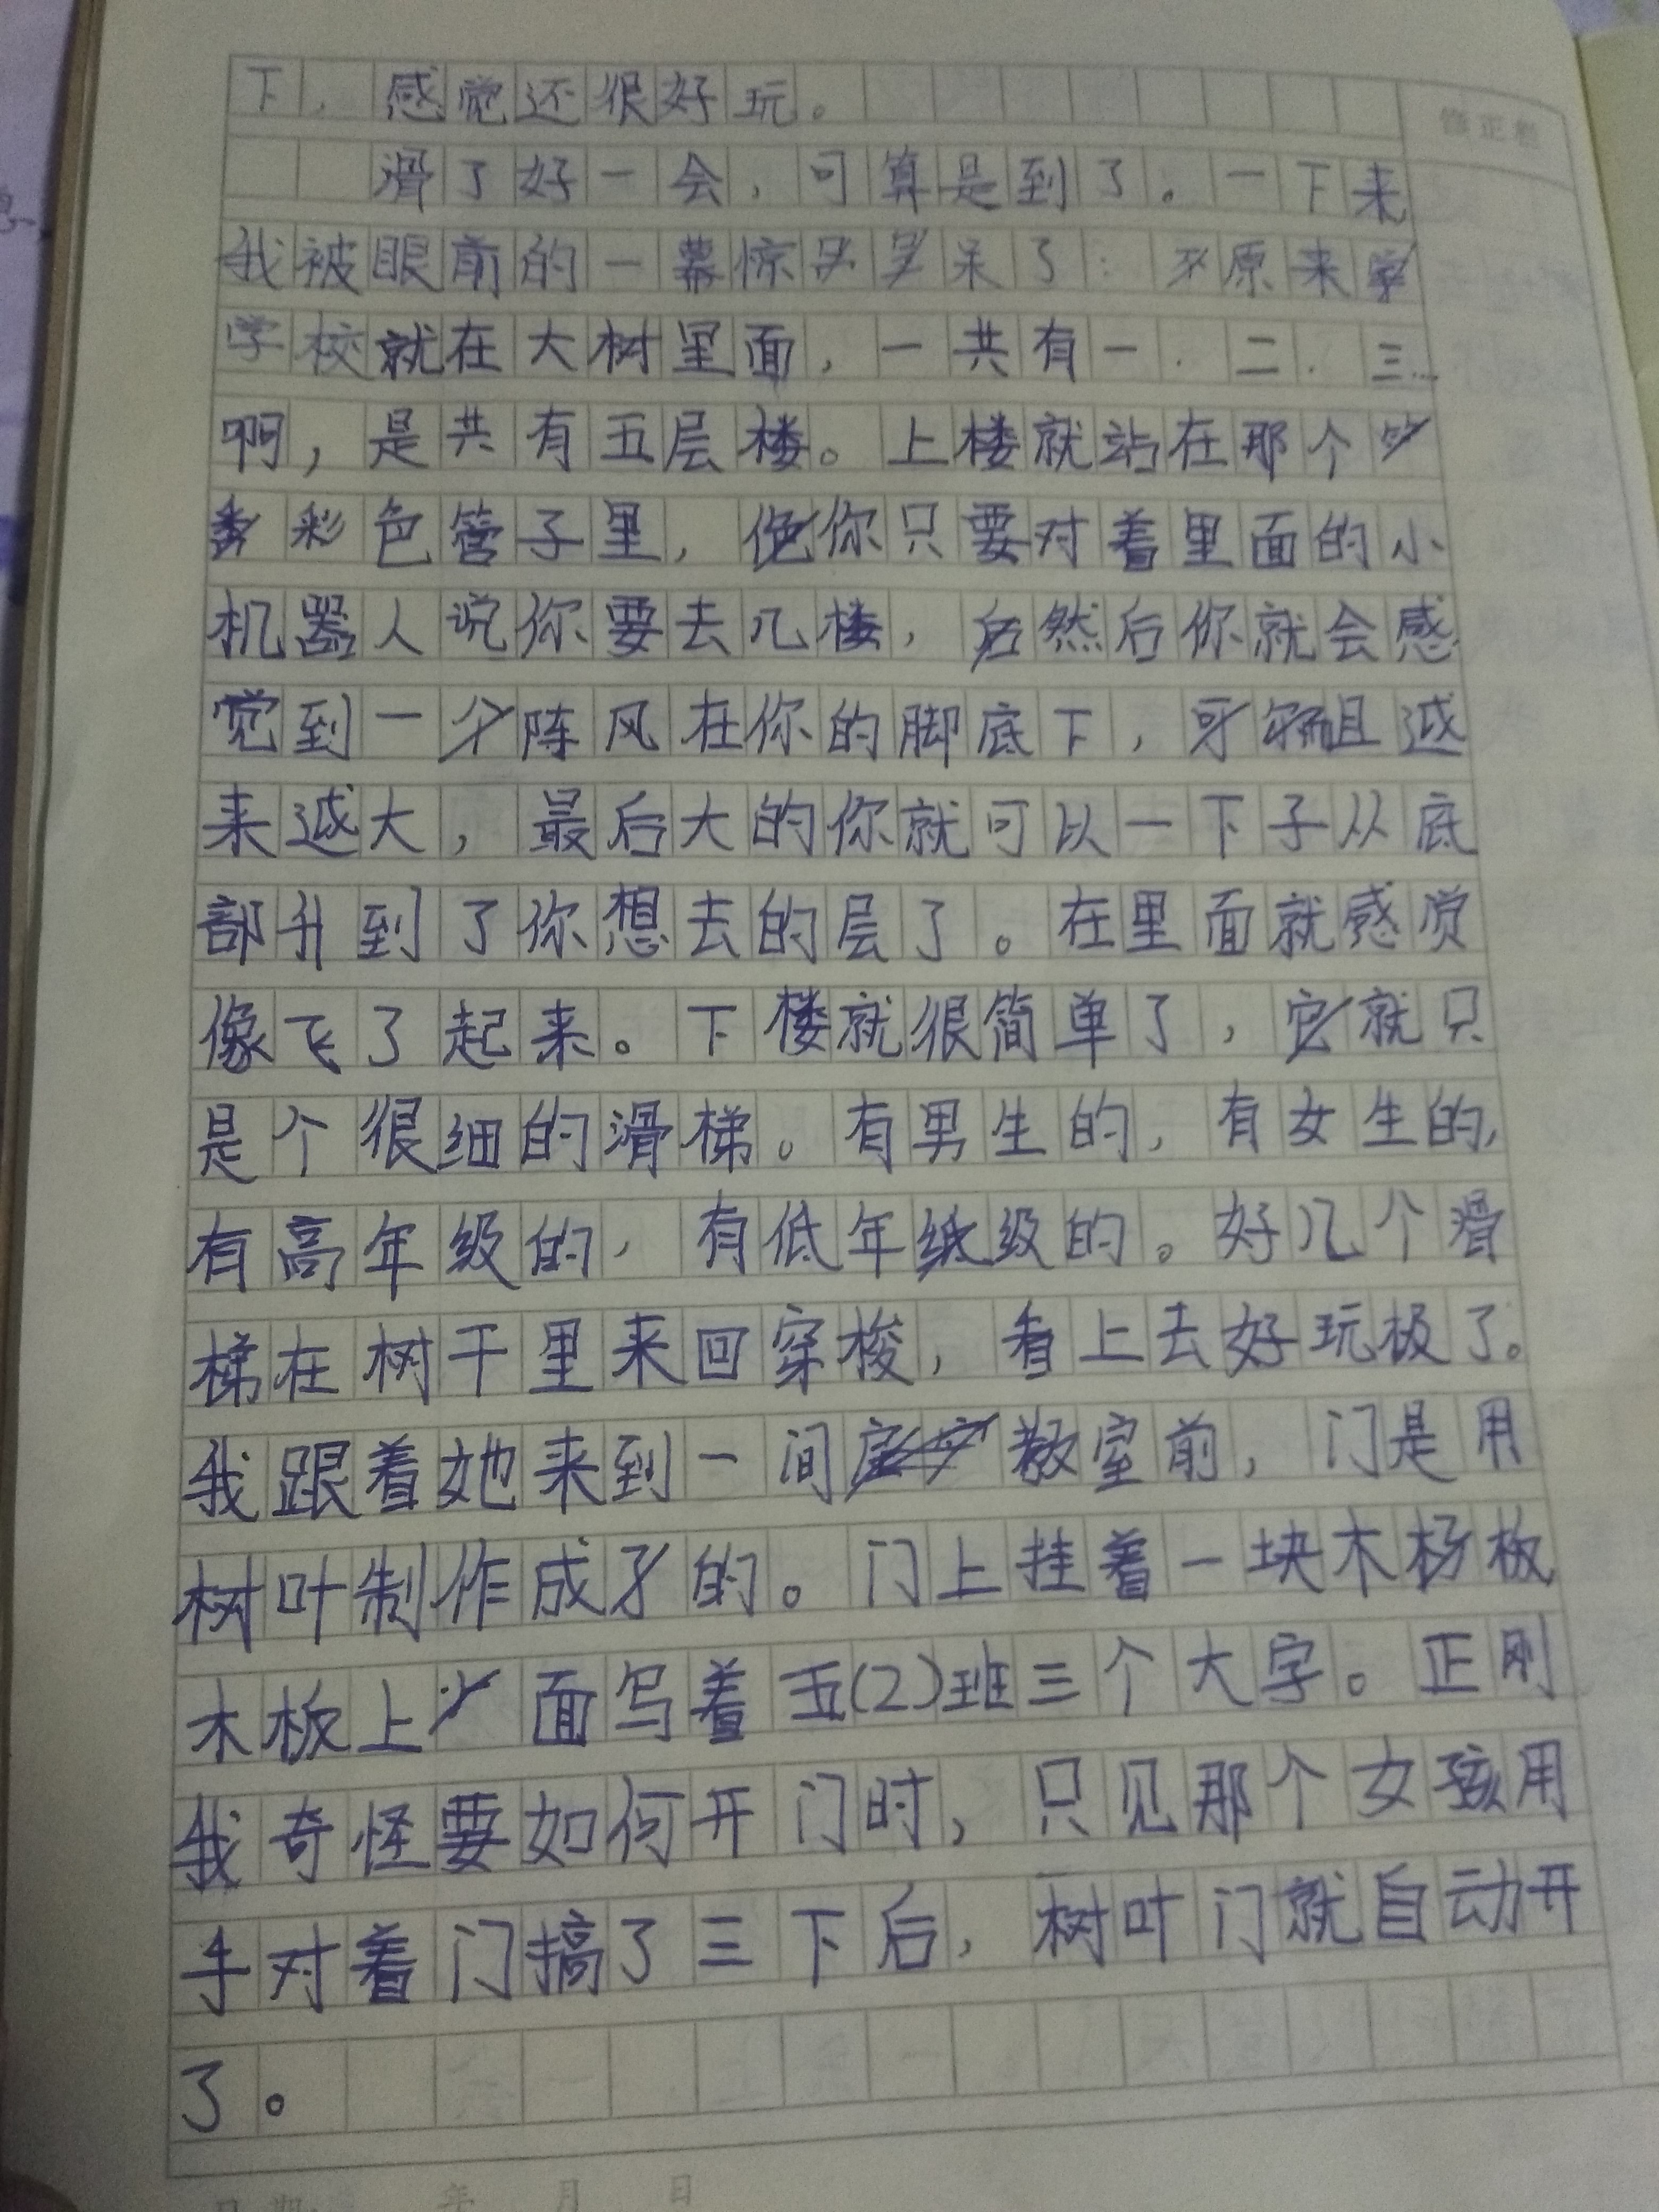 修正栏
下，感觉还很好玩。
滑了好一会，可算是到了。一下来
我被眼前的一幕惊呆了：原来
学校就在大树里面，一共有一．二．三…
啊，是共有五层楼。上楼就站在那个
彩色管子里，你只要对着里面的小
机器人说你要去几楼，然后你就会感
觉到一阵风在你的脚底下，而且越
来越大，最后大的你就可以一下子从底
部升到了你想去的层了。在里面就感觉
像飞了起来。下楼就很简单了，就只
是个很细的滑梯。有男生的，有女生的，
有高年级的，有低年级的。好几个滑
梯在树干里来回穿梭，看上去好玩极了。
我跟着她来到一间教室前，门是用
树叶制作成的。门上挂着一块木板
木板上面写着五(2)班三个大字。正刚
我奇怪要如何开门时，只见那个女孩用
手对着门搞了三下后，树叶门就自动开
了。
日期： 年 月 日